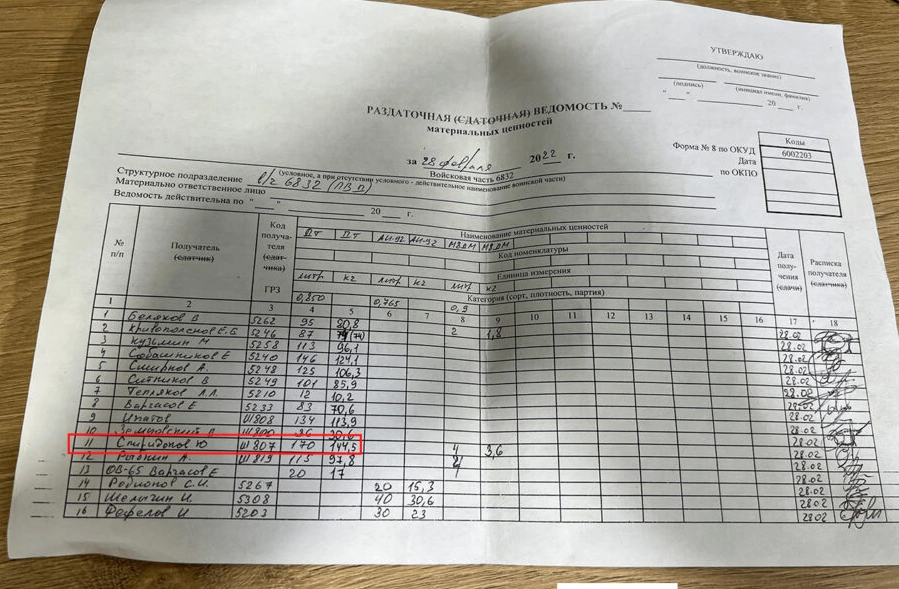 УТВЕРЖДАЮ
(должность, воинское звание)
(подпись) (инициал имени, фамилия)
"___" ________ 20 __ г.
РАЗДАТОЧНАЯ (СДАТОЧНАЯ) ВЕДОМОСТЬ №____
материальных ценностей
Коды
Форма № 8 по ОКУД 6002203
за 28 февраля 2022 г. Дата
Войсковая часть 6832 по ОКПО
Структурное подразделение в/ч 6832 (ПВД)
(условное, а при отсутствии условного - действительное наименование воинской части)
Материально ответственное лицо
Ведомость действительна по "___" ________ 20 __ г.
№ п/п Получатель (сдатчик) Код получателя (сдатчика) ГРЗ Наименование материальных ценностей Дата получения (сдачи) Расписка получателя (сдатчика)
ДТ ДТ АИ-92 АИ-92
Код номенклатуры
Единица измерения
литр кг литр кг литр кг
Категория (сорт, плотность, партия)
0,850 0,765 0,9
1 2 3 4 5 6 7 8 9 10 11 12 13 14 15 16 17 18
1 Беляков В 5262 95 80,8 28.02
2 Кривополенов Е.Б 5246 87 (74) 2 1,8 28.02
3 Кузьмин М 5258 113 96,1 28.02
4 Собашников Е 5240 146 124,1 28.02
5 Смирнов А. 5248 125 106,3 28.02
6 Ситников В 5249 101 85,9 28.02
7 Тепляков А.А. 5210 12 10,2 28.02
8 Варгасов Е 5233 83 70,6 28.02
9 Ипатов Ш808 134 113,9 28.02
10 Ш800 36 30,6 28.02
11 Спиридонов Ю Ш807 170 144,5 4 3,6 28.02
12 Рыбкин А. Ш819 115 97,8 28.02
13 ОВ-65 Варгасов Е 20 17 28.02
14 Родионов С.И. 5267 20 15,3 28.02
15 Шелыгин И. 5308 40 30,6 28.02
16 Фефелов И 5203 30 23 28.02